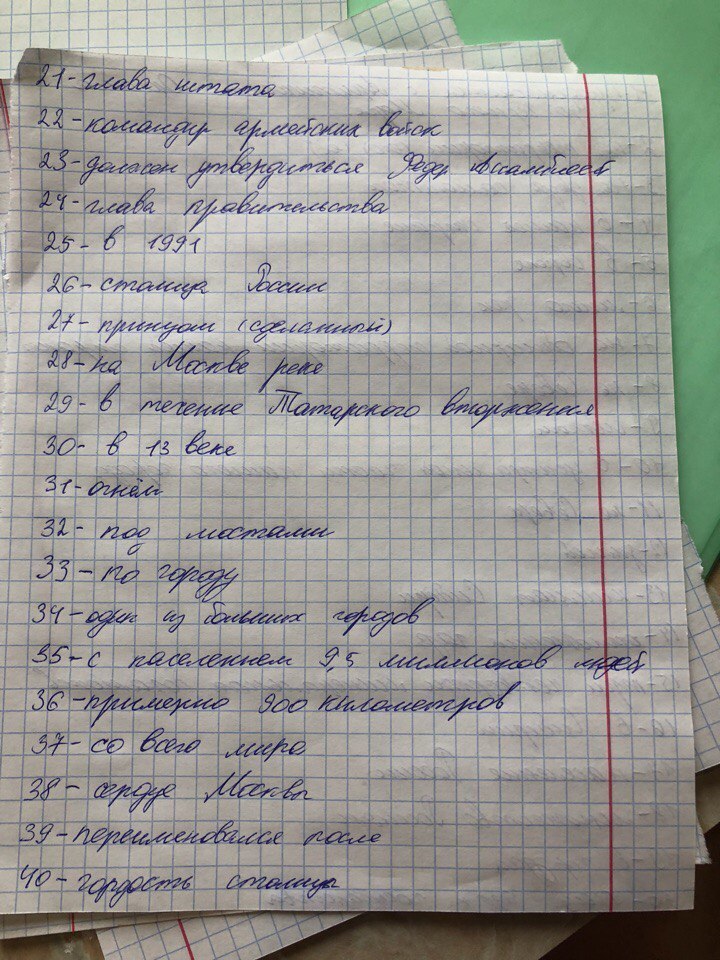 21-глава штата
22-командир армейских войск
23-должен утвердиться Федер Ассамблеей
24-глава правительства
25-в 1991
26-столица России
27-принцом (сделанный)
28-на Москве реке
29-в течение Татарского вторжения
30-в 13 веке
31-огнём
32-под мостами
33-по городу
34-один из больших городов
35-с населением 9,5 миллионов людей
36-примерно 900 километров
37-со всего мира
38-сердце Москвы
39-переименовался после
40-гордость столицы